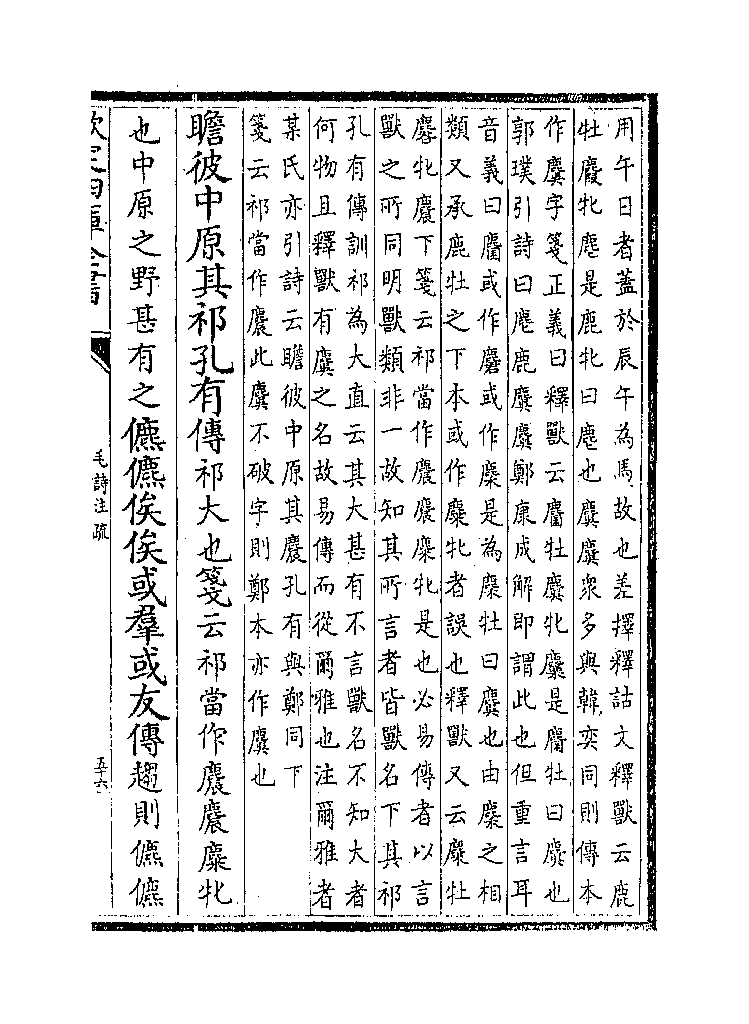 用午日者蓋於辰午為馬故也差擇釋詁文釋獸云鹿
牡麚牝麀是鹿牝曰麀也麌麌衆多與韓奕同則傳本
作麌字箋正義曰釋獸云麕牡麌牝麜是麕牡曰麌也
郭璞引詩曰麀鹿麌麌鄭康成解即謂此也但重言耳
音義曰麕或作麏或作麇是為麇牡曰麌也由麇之相
類又承鹿牡之下本或作麋牝者誤也釋獸又云麋牡
麔牝麎下箋云祁當作麎麎麋牝是也必易傳者以言
獸之所同明獸類非一故知其所言者皆獸名下其祁
孔有傳訓祁為大直云其大甚有不言獸名不知大者
何物且釋獸有麌之名故易傳而從爾雅也注爾雅者
某氏亦引詩云瞻彼中原其麎孔有與鄭同下
箋云祁當作麎此麌不破字則鄭本亦作麌也
瞻彼中原其祁孔有傳祁大也箋云祁當作麎麎麋牝
也中原之野甚有之儦儦俟俟或羣或友傳趨則儦儦
欽定四庫全書
毛詩注疏
五十六